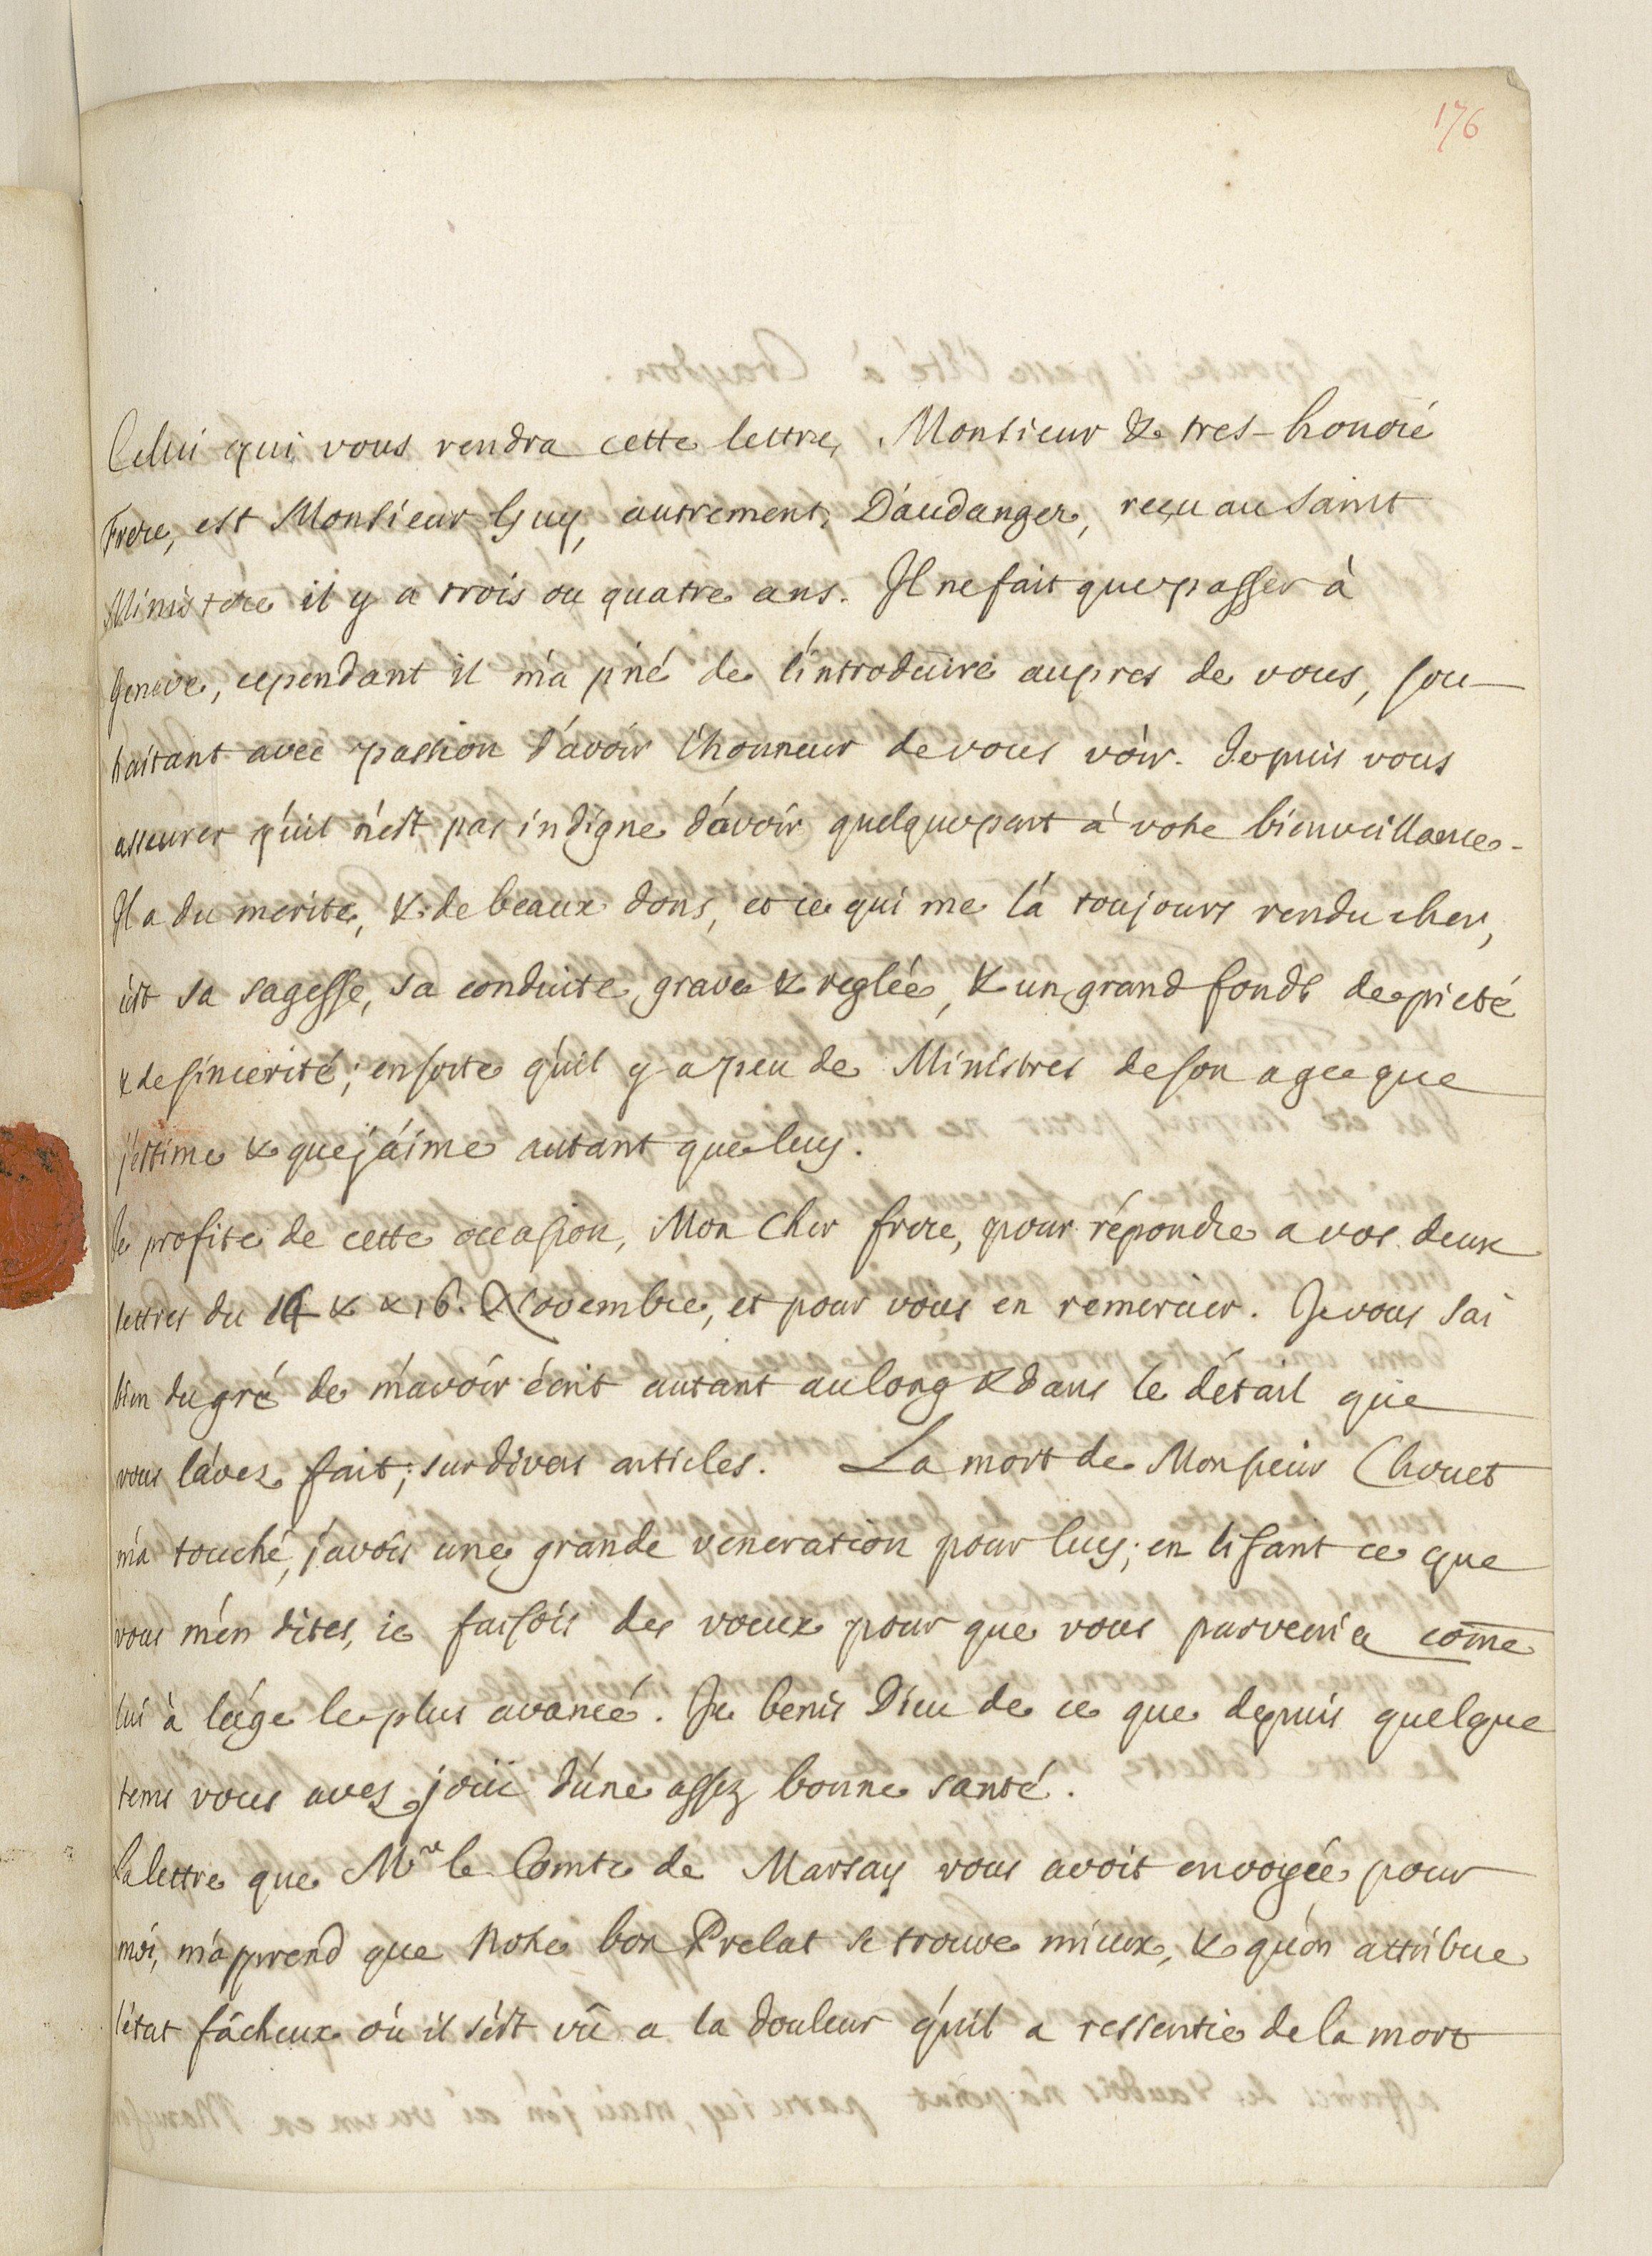 176
Celui qui vous rendra cette lettre, Monsieur & tres-honoré
Frere, est Monsieur Guy, autrement, D'audanger, reçu au Saint
Ministére il y a trois ou quatre ans. Il ne fait que passer à
Geneve, cependant il m'a prié de l'introduire aupres de vous, sou-
haitant avec passion d'avoir l'honneur de vous voir. Je puis vous
asseurer qu'il n'est pas indigne d'avoir quelque part à votre bienveillance.
Il a du merite, & de beaux dons, et ce qui me l'a toujours rendu cher,
c'est sa sagesse, sa conduite grave & reglée, & un grand fonds de pieté
& de sincerité; en sorte qu'il y a peu de Ministres de son age que
j'estime & que j'aime autant que luy.
Je profite de cette occasion, Mon cher frere, pour répondre a vos deux
lettres du 14 & & 16. Novembre, et pour vous en remercier. Je vous sai
bien du gré de m'avoir écrit autant au long & dans le détail que
vous l'avez fait, sur divers articles. La mort de Monsieur Chouet
m'a touché, j'avois une grande veneration pour luy; en lisant ce que
vous m'en dites, je faisois des voeux pour que vous parveniez come
lui à l'age le plus avancé. Je benis Dieu de ce que depuis quelque
tems vous avez jouï d'une assez bonne santé.
La lettre que Mr le Comte de Marsay vous avoit envoyée pour
moi, m'apprend que notre bon Prelat se trouve mieux, & qu'on attribue
l'état fâcheux où il s'est vû a la douleur qu'il a ressentie de la mort